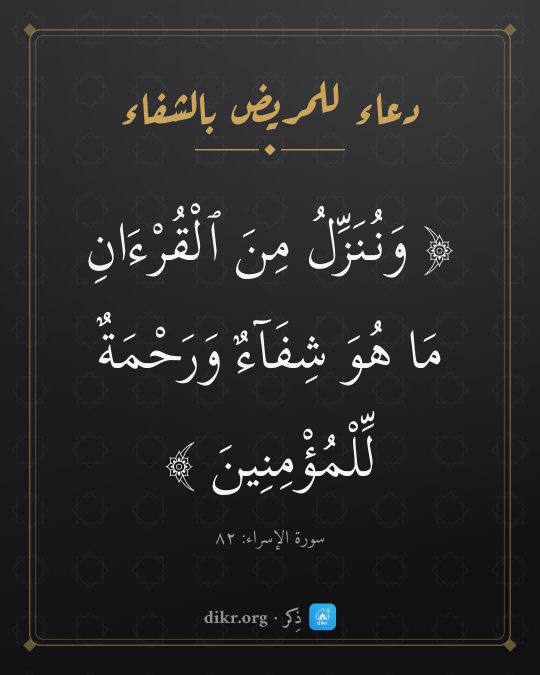 دعاء للمريض بالشفاء
﴿ وَنُنَزِّلُ مِنَ ٱلْقُرْءَانِ
مَا هُوَ شِفَآءٌ وَرَحْمَةٌ
لِّلْمُؤْمِنِينَ ﴾
سورة الإسراء: ٨٢
ذِكر · dikr.org
dikr